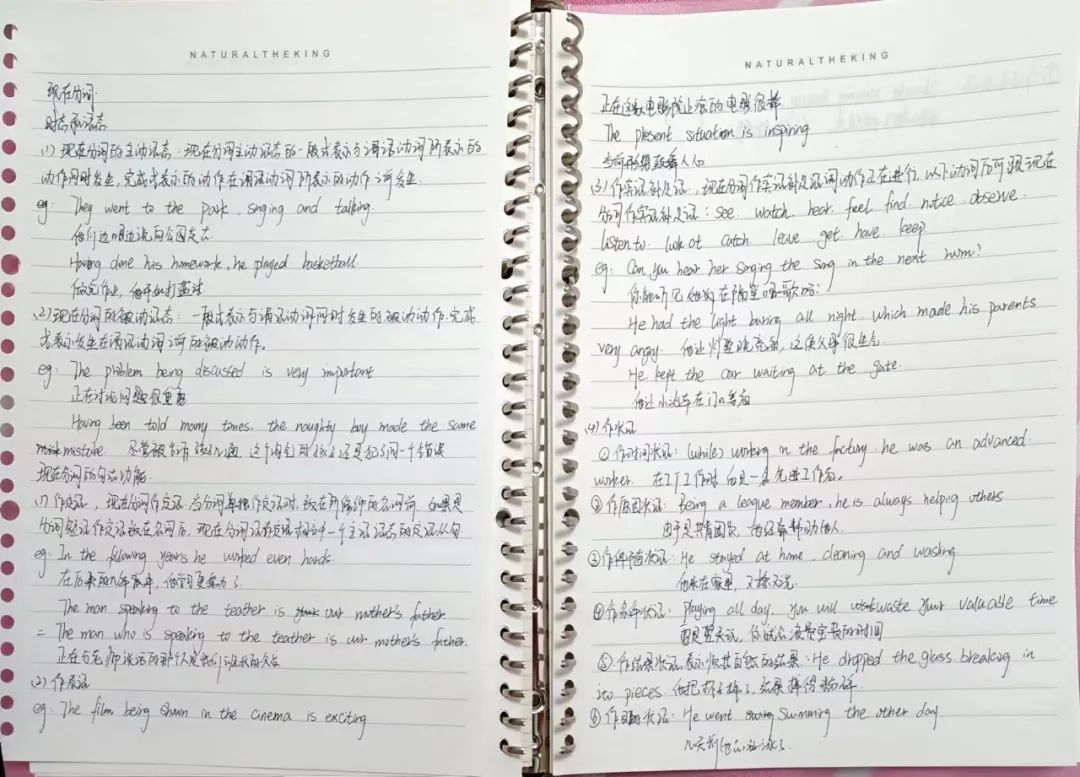 NATURALTHEKING
现在分词
时态和语态
(1) 现在分词的主动语态：现在分词主动语态的一般式表示与谓语动词所表示的
动作同时发生，完成式表示的动作在谓语动词所表示的动作之前发生.
eg: They went to the park, singing and talking.
他们边唱边说向公园走去.
Having done his homework, he played basketball.
做完作业，他开始打篮球
(2) 现在分词的被动语态：一般式表示与谓语动词同时发生的被动动作，完成
式表示发生在谓语动词之前的被动动作。
eg: The problem being discussed is very important
正在讨论问题很重要
Having been told many times, the naughty boy made the same
mistake. 尽管被告诉了好几遍，这个淘气的孩子还是犯了同一个错误
现在分词的句法功能
(1) 作定语，现在分词作定语，当分词单独作定语时，放在所修饰的名词前，如果是
分词短语作定语放在名词后，现在分词作定语相当于一个主谓语态的定语从句
eg: In the following years he worked even hards.
在后来的几年里，他学习更努力了
The man speaking to the teather is our mother's father
= The man who is speaking to the teather is our mother's father.
正在与老师谈话的那个人是我们
(2) 作表语
eg: The film being shown in the cinema is exciting
NATURALTHEKING
正在这家电影院上演的电影很棒
The present situation is inspiring
当前形势鼓舞人心
(3) 作宾语补足语，现在分词作宾语补足语词动作正在进行，以下动词后可跟现在
分词作宾语补足语：see, watch, hear, feel, find, notice, observe,
listen to, look at, catch, leave, get, have, keep
eg: Can you hear her singing the sing in the next room?
你能听见她在隔壁唱歌吗?
He had the light buring all night, which made his parents
very angry. 他让灯整晚亮着，这使父母很生气
He kept the car waiting at the gate.
他让小汽车在门口等着
(4) 作状语
① 作时间状语: (while) working in the factory, he was an advanced
worker. 在工厂工作时 他是一名先进工作者。
② 作原因状语: Being a league member, he is always helpig others
由于是共青团员，他经常帮助他人.
③ 作伴随状语: He stayed at home, cleaning and washing
他呆在家里，又擦又洗
④ 作条件状语: Playing all day, you will waste your valuable time
要是整天玩，你就会浪费宝贵的时间
⑤ 作结果状语，表示自然的结果: He dropped the glass, breaking in
ito pieces. 他把杯子掉了，结果摔得粉碎.
⑥ 作目的状语: He went swimming the other day
几天前他去游泳了.